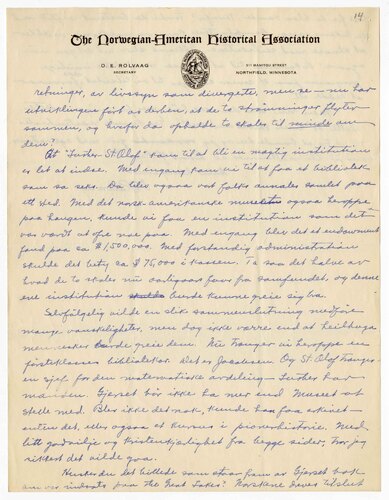 14
The Norwegian-American Historical Association
O. E. ROLVAAG
SECRETARY
311 MANITOU STREET
NORTHFIELD, MINNESOTA
retninger, av livssyn som divergerte, men se — nu har
utviklingen ført os derhen, at de to strømninger flyter
sammen, og hvorfor da opholde to skoler til minde om
dem?
At "Luther-St. Olaf" kan til at bli en mægtig institution
er let at indse. Med engang kan vi til at faa et bibliotek
som sa seks. Da blev ogsaa vort folks annaler samlet paa
ett sted. Med det norsk-amerikanske museum ogsaa heroppe
paa haugen, kunde vi faa en institution som det
var værdt at ofre noe paa. Med engang blev det et endowment
fond paa ca $1,500,000. Med forstandig administration
skulde det bety ca $75,000 i kassen. Ta saa det halve av
hvad de to skoler nu aarligaar faar fra samfundet, og denne
ene institution burde kunne greie sig bra.
Selvfølgelig vilde en slik sammenslutning medføre
mange vanskeligheter, men dog ikke værre end at heilhuga
mennesker burde greie dem. Nu trænger vi heroppe en
førsteklasses bibliotekar. Det er Jacobsen. Og St. Olaf trænger
en sjef for den matematiske avdeling — Luther har
manden. Gjerset bør ikke ha mer end Museet at
stelle med. Blev ikke det nok, kunde han faa arkivet —
enten det, eller ogsaa et kursus i pionerhistorie. Med
litt godvilje og kristenkjærlighet fra begge sider, tror jeg
sikkert det vilde gaa.
Husker du det billede som staar foran av Gjerset bok
om vor indsats paa the Great Lakes? Norskene dreves tilslut